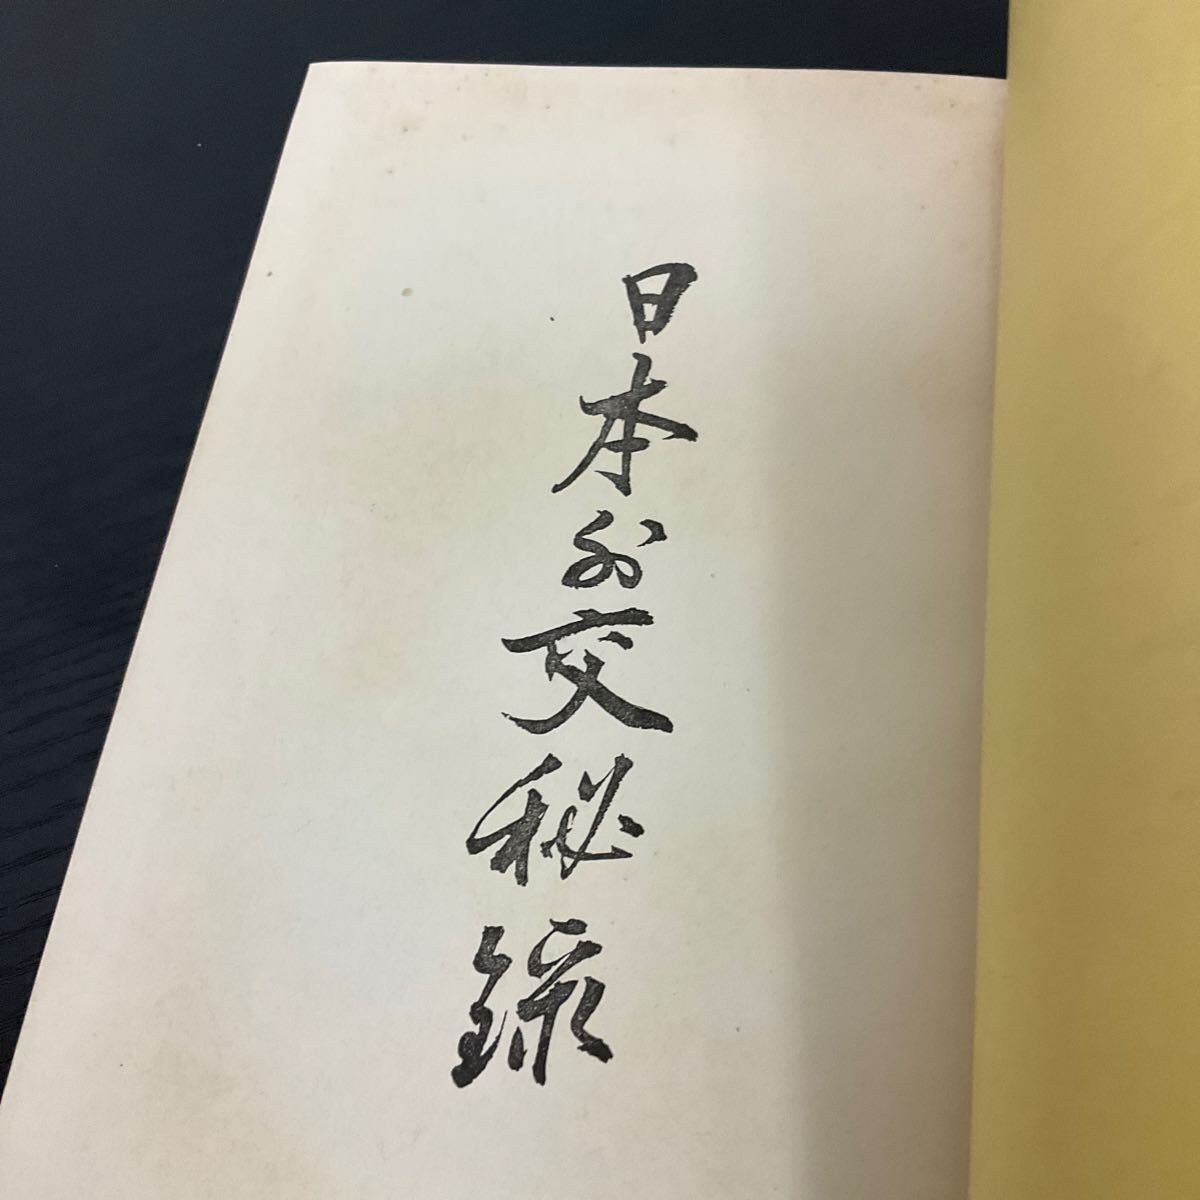 日本外交秘録